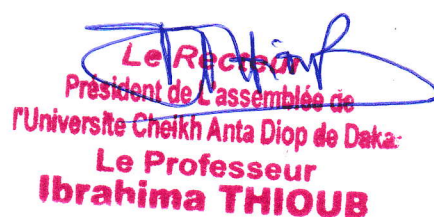 Le Recteur
Président de L'assemblée de
l'Université Cheikh Anta Diop de Dakar
Le Professeur
Ibrahima THIOUB